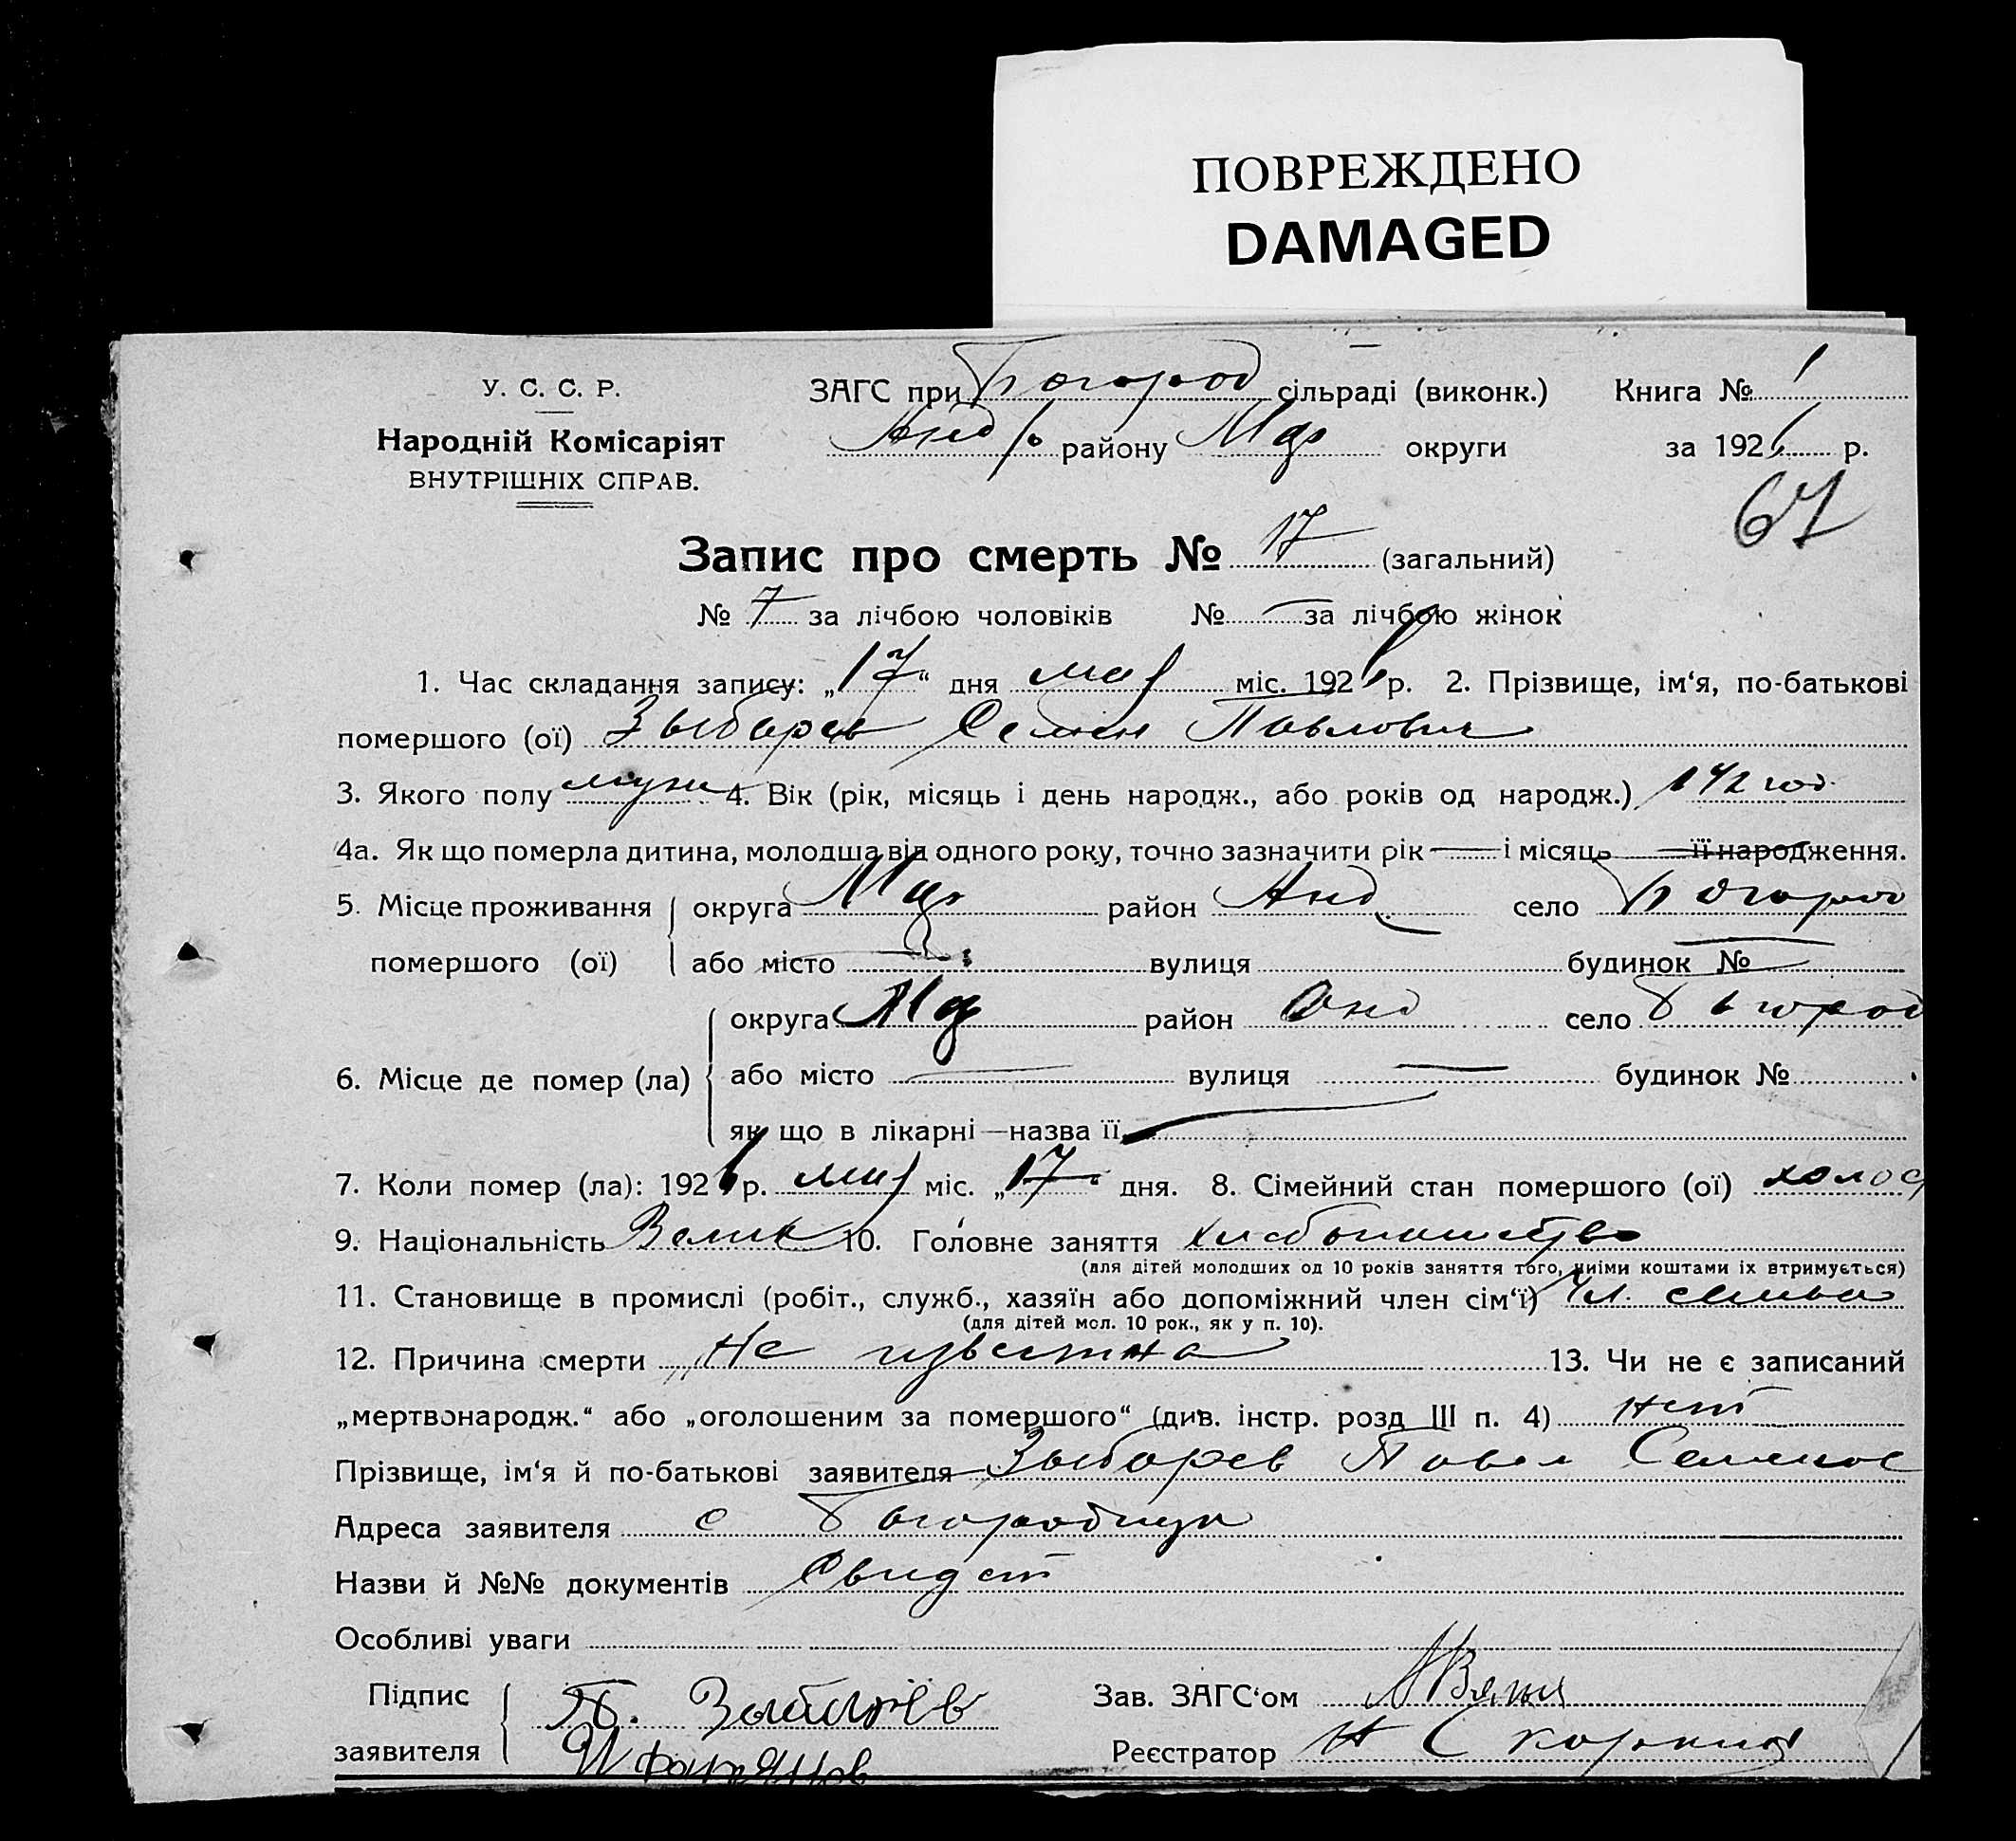 ПОВРЕЖДЕНО
DAMAGED
У. С. С. Р.
Народній Комісаріят
ВНУТРІШНІХ СПРАВ.
ЗАГС при Богород сільраді (виконк.) Книга № 1
району округи за 1926 р.
67
Запис про смерть № 17 (загальний)
№ 7 за лічбою чоловіків № — за лічбою жінок
1. Час складання запису: „17“ дня мая міс. 1926 р. 2. Прізвище, ім‘я, по-батькові
помершого (ої) Зыбарев Семен Павлович
3. Якого полу муж 4. Вік (рік, місяць і день народж., або років од народж.) 1 1/2 год
4а. Як що померла дитина, молодша від одного року, точно зазначити рік — і місяць — її народження.
5. Місце проживання округа район Анд село Богород
помершого (ої) або місто — вулиця будинок № —
6. Місце де помер (ла) округа район Анд село Богород
або місто — вулиця — будинок №
як що в лікарні—назва її —
7. Коли помер (ла): 1926 р. мая міс. „17 дня. 8. Сімейний стан помершого (ої) холос
9. Національність Велик 10. Головне заняття хлебопашество
(для дітей молодших од 10 років заняття того, чиіми коштами їх втримується)
11. Становище в промислі (робіт., служб., хазяїн або допоміжний член сім‘ї) чл. семьи
(для дітей мол. 10 рок., як у п. 10).
12. Причина смерти Не известна 13. Чи не є записаний
„мертвонародж.“ або „оголошеним за помершого“ (див. інстр. розд III п. 4) нет
Прізвище, ім‘я й по-батькові заявителя Зыбарев Павел
Адреса заявителя с Богородицк
Назви й №№ документів Свидет
Особливі уваги
Підпис заявителя П.
Зав. ЗАГС‘ом
Реєстратор Н